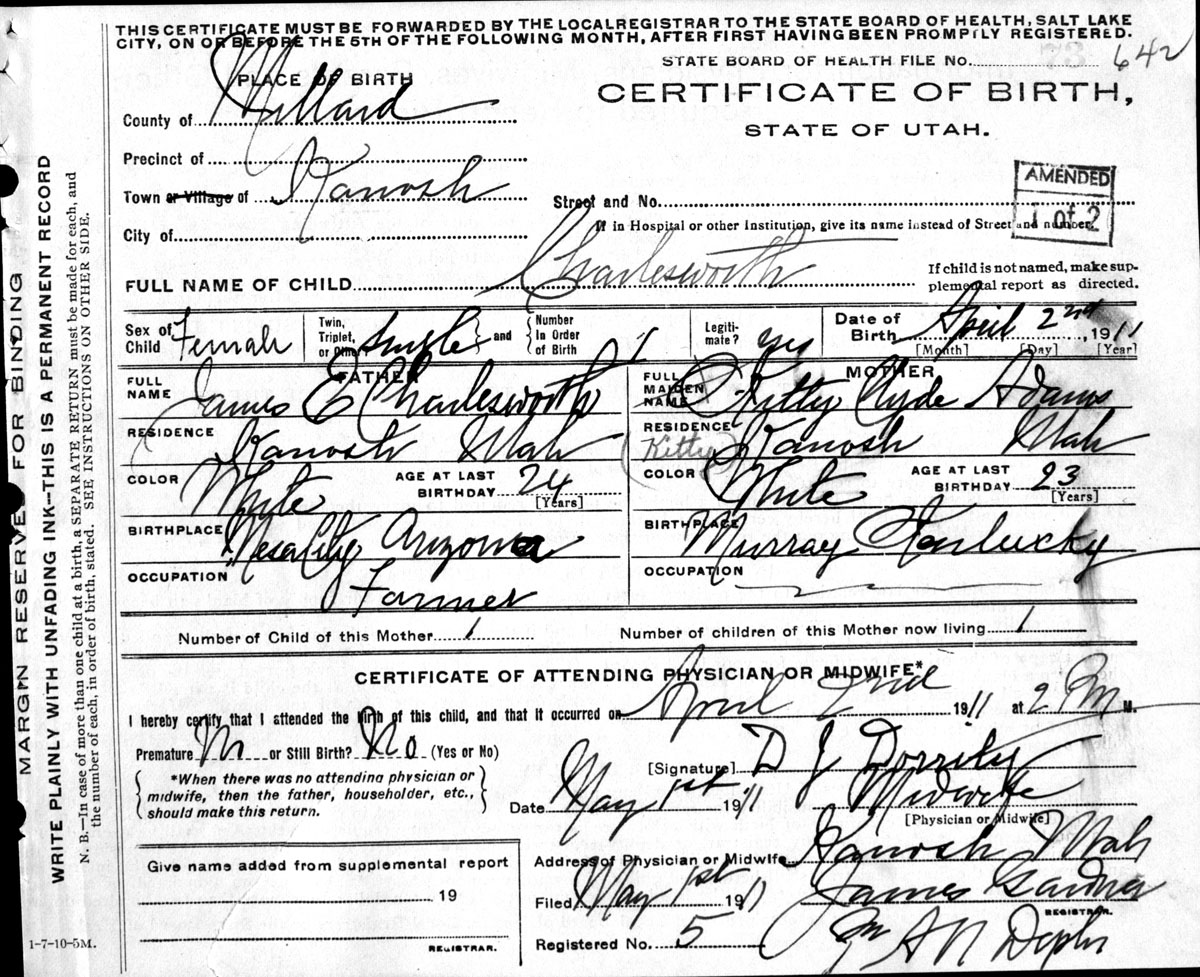 THIS CERTIFICATE MUST BE FORWARDED BY THE LOCAL REGISTRAR TO THE STATE BOARD OF HEALTH, SALT LAKE
CITY, ON OR BEFORE THE 5TH OF THE FOLLOWING MONTH, AFTER FIRST HAVING BEEN PROMPTLY REGISTERED.
STATE BOARD OF HEALTH FILE No. 642
PLACE OF BIRTH
CERTIFICATE OF BIRTH,
STATE OF UTAH.
County of Millard
Precinct of
Town or Village of Kanosh
AMENDED
1 of 2
Street and No.
If in Hospital or other Institution, give its name instead of Street and number.
City of
FULL NAME OF CHILD Charlesworth
If child is not named, make sup-
plemental report as directed.
Sex of Child Female
Twin, Triplet, or Other? Single and Number In Order of Birth 1
Legiti-mate? yes
Date of Birth April 2nd, 1911
[Month] [Day] [Year]
FATHER
FULL NAME James E Charlesworth
RESIDENCE Kanosh Utah
COLOR White AGE AT LAST BIRTHDAY 24 [Years]
BIRTHPLACE Mesa City Arizona
OCCUPATION Farmer
MOTHER
FULL MAIDEN NAME Kitty Clyde Adams
RESIDENCE Kanosh Utah
(Kittie)
COLOR White AGE AT LAST BIRTHDAY 23 [Years]
BIRTHPLACE Murray Kentucky
OCCUPATION
Number of Child of this Mother 1 Number of children of this Mother now living 1
CERTIFICATE OF ATTENDING PHYSICIAN OR MIDWIFE*
I hereby certify that I attended the birth of this child, and that it occurred on April 2nd 1911 at 2 P M M.
Premature or Still Birth? No (Yes or No)
*When there was no attending physician or
midwife, then the father, householder, etc.,
should make this return.
[Signature] D J Dorrity
Date May 1st 1911 Midwife
[Physician or Midwife]
Give name added from supplemental report
19
REGISTRAR.
Address of Physician or Midwife Kanosh Utah
Filed May 1st 1911 James Gardner
REGISTRAR.
Registered No. 5
1-7-10-5M.
MARGIN RESERVED FOR BINDING
WRITE PLAINLY WITH UNFADING INK—THIS IS A PERMANENT RECORD
N. B.—In case of more than one child at a birth, a SEPARATE RETURN must be made for each, and
the number of each, in order of birth, stated. SEE INSTRUCTIONS ON OTHER SIDE.